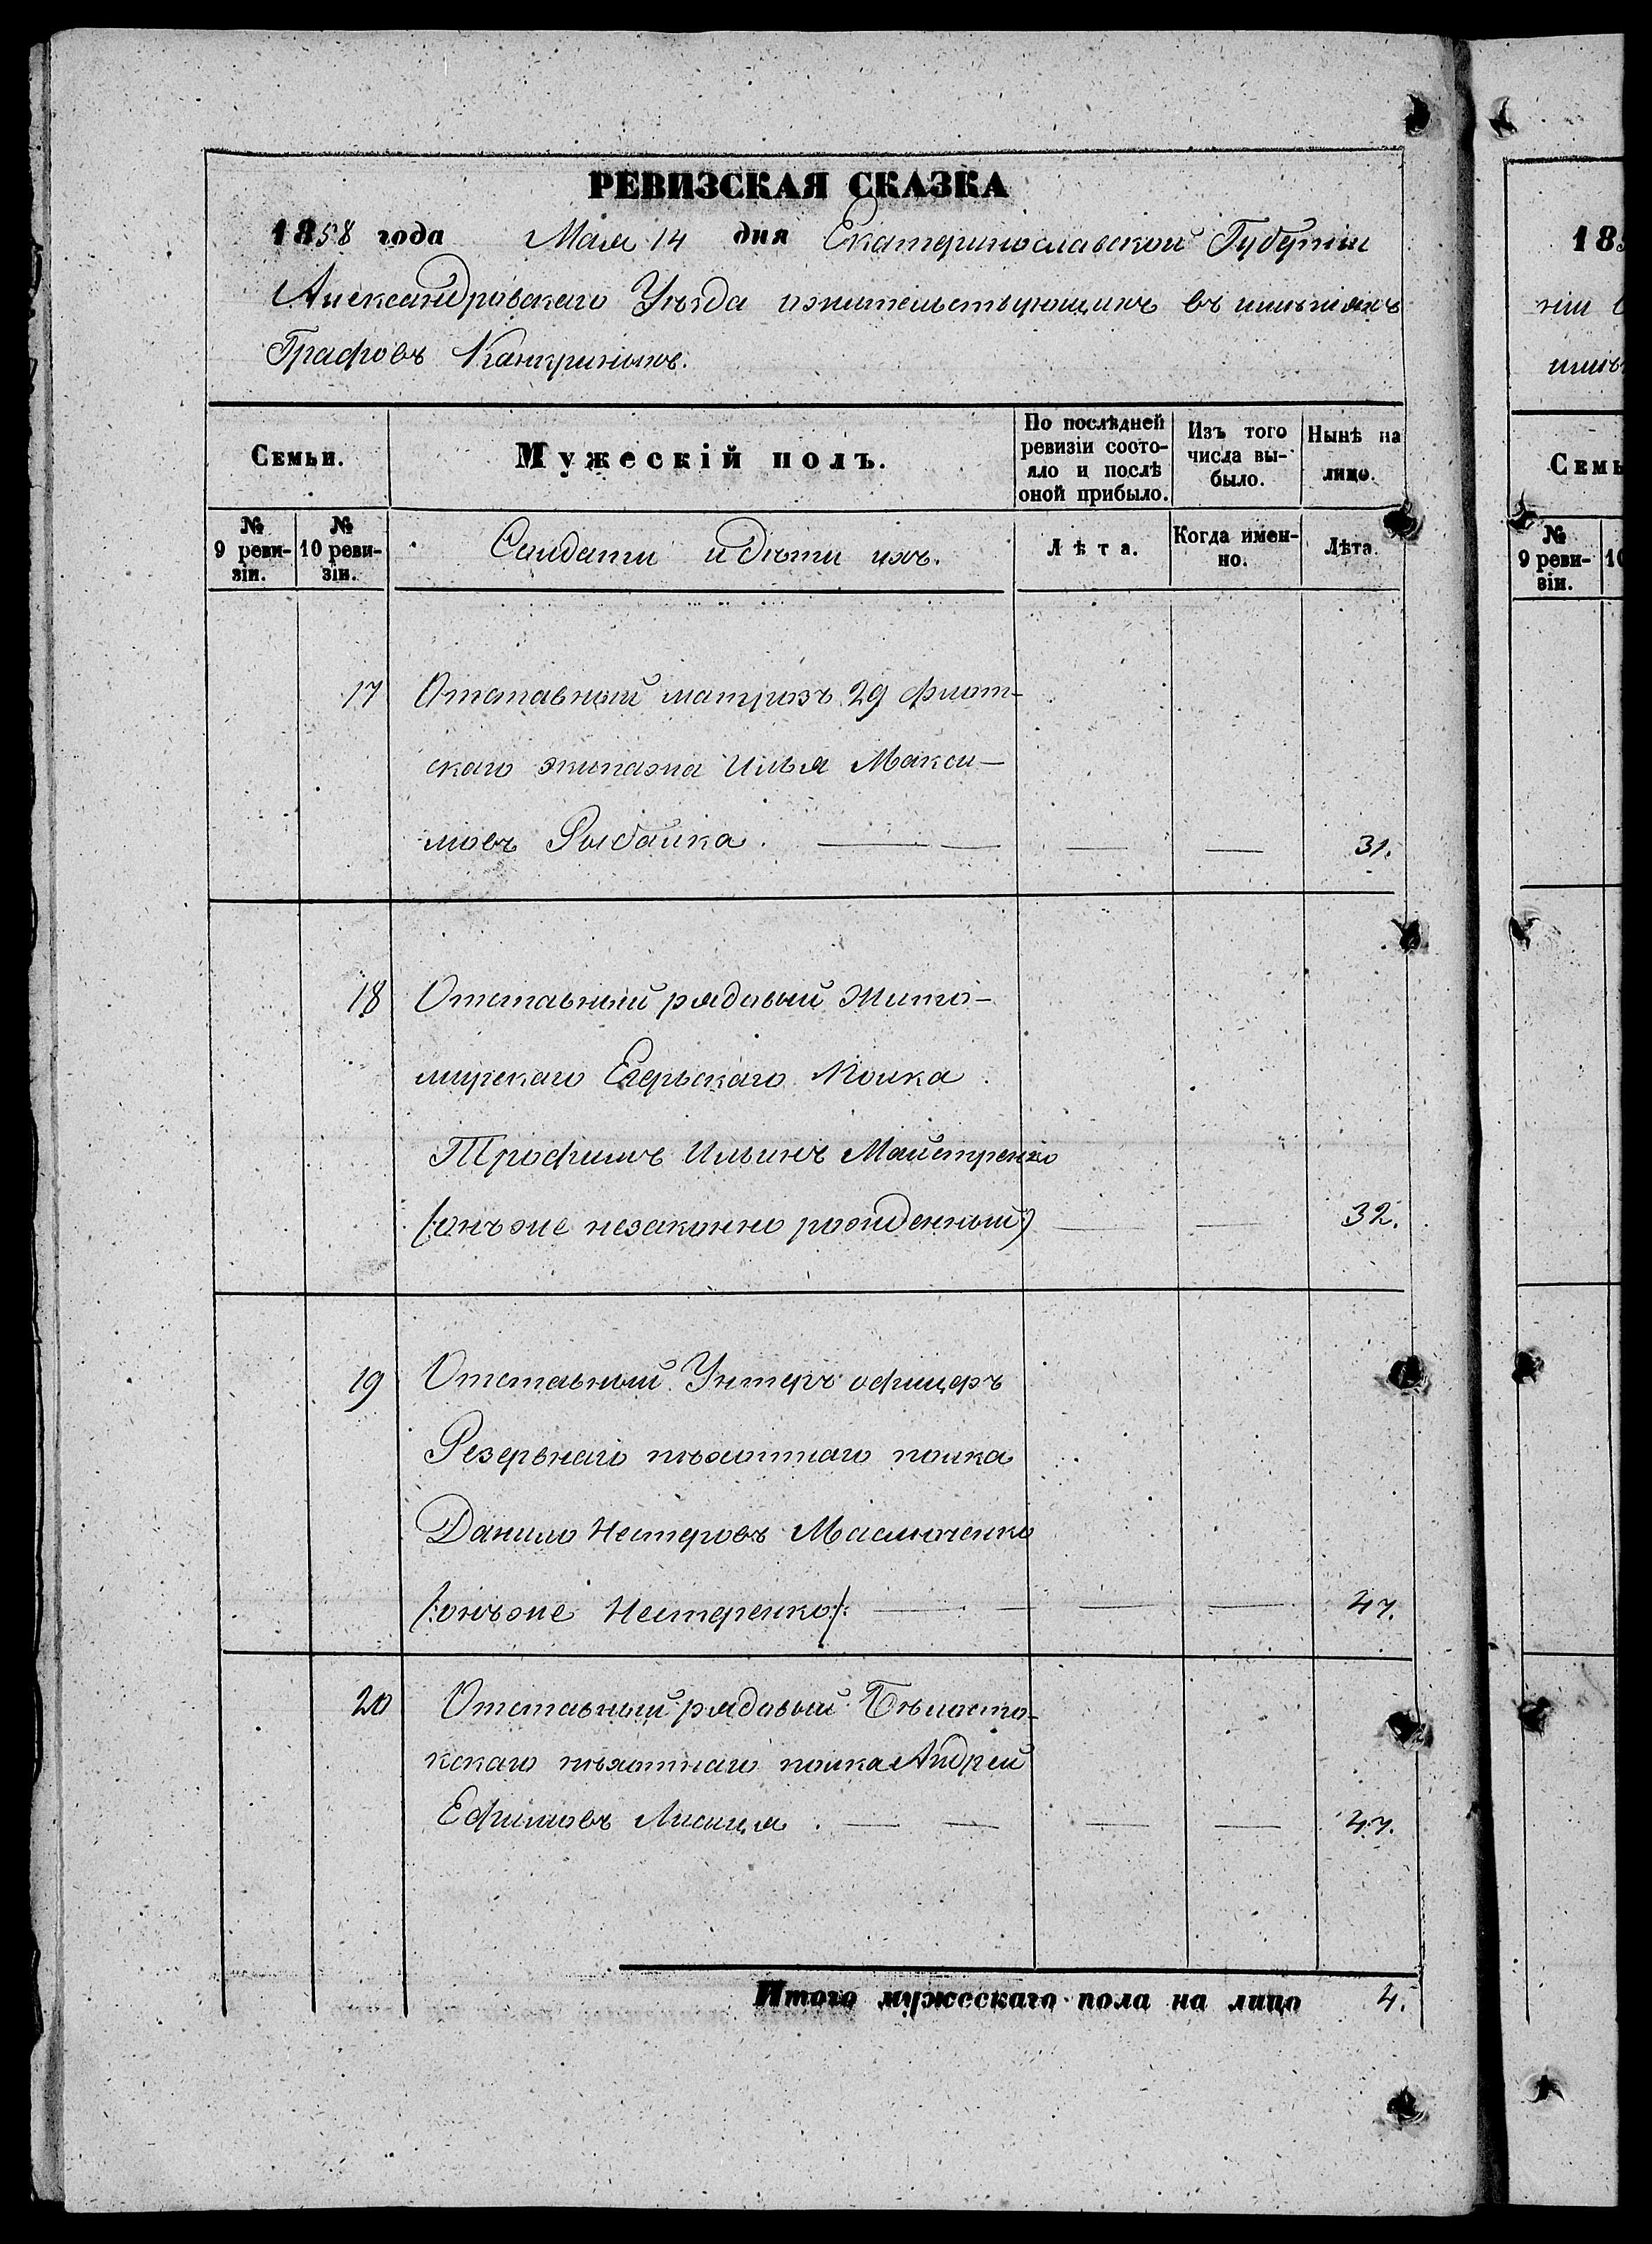 РЕВИЗСКАЯ СКАЗКА
1858 года Мая 14 дня Екатеринославской Губернiи
Александровскаго Уѣзда о жительствующихъ въ имѣнiяхъ
Графовъ Канкриныхъ.
Семьи.
Мужескiй полъ.
По послѣдней ревизiи состояло и послѣ оной прибыло.
Изъ того числа выбыло.
Нынѣ на лицо.
№ 9 ревизiи.
№ 10 ревизiи.
Солдаты и дѣти ихъ.
Лѣта.
Когда именно.
Лѣта.
17 Отставный матрозъ 29 флот-
скаго экипажа Илья Макси-
мовъ Рыбалка. — — — — 31.
18 Отставный рядовый Жито-
мирскаго Егерьскаго Полка
Трофимъ Ильинъ Майстренко
/:онъ же незаконно рожденный:/ — — 32.
19 Отставный Унтеръ офицеръ
Резервнаго пѣхотнаго полка
Данило Нестеровъ Маслюченко
/:онъ же Нестеренко:/. — — — — 47.
20 Отставный рядовый Бѣлосто-
кскаго пѣхотнаго полка Андрей
Ефимовъ Лисица. — — — — 47.
Итого мужескаго пола на лицо 4.
185
нiи
имѣ
Семь
№ 9 ревизiи.
10